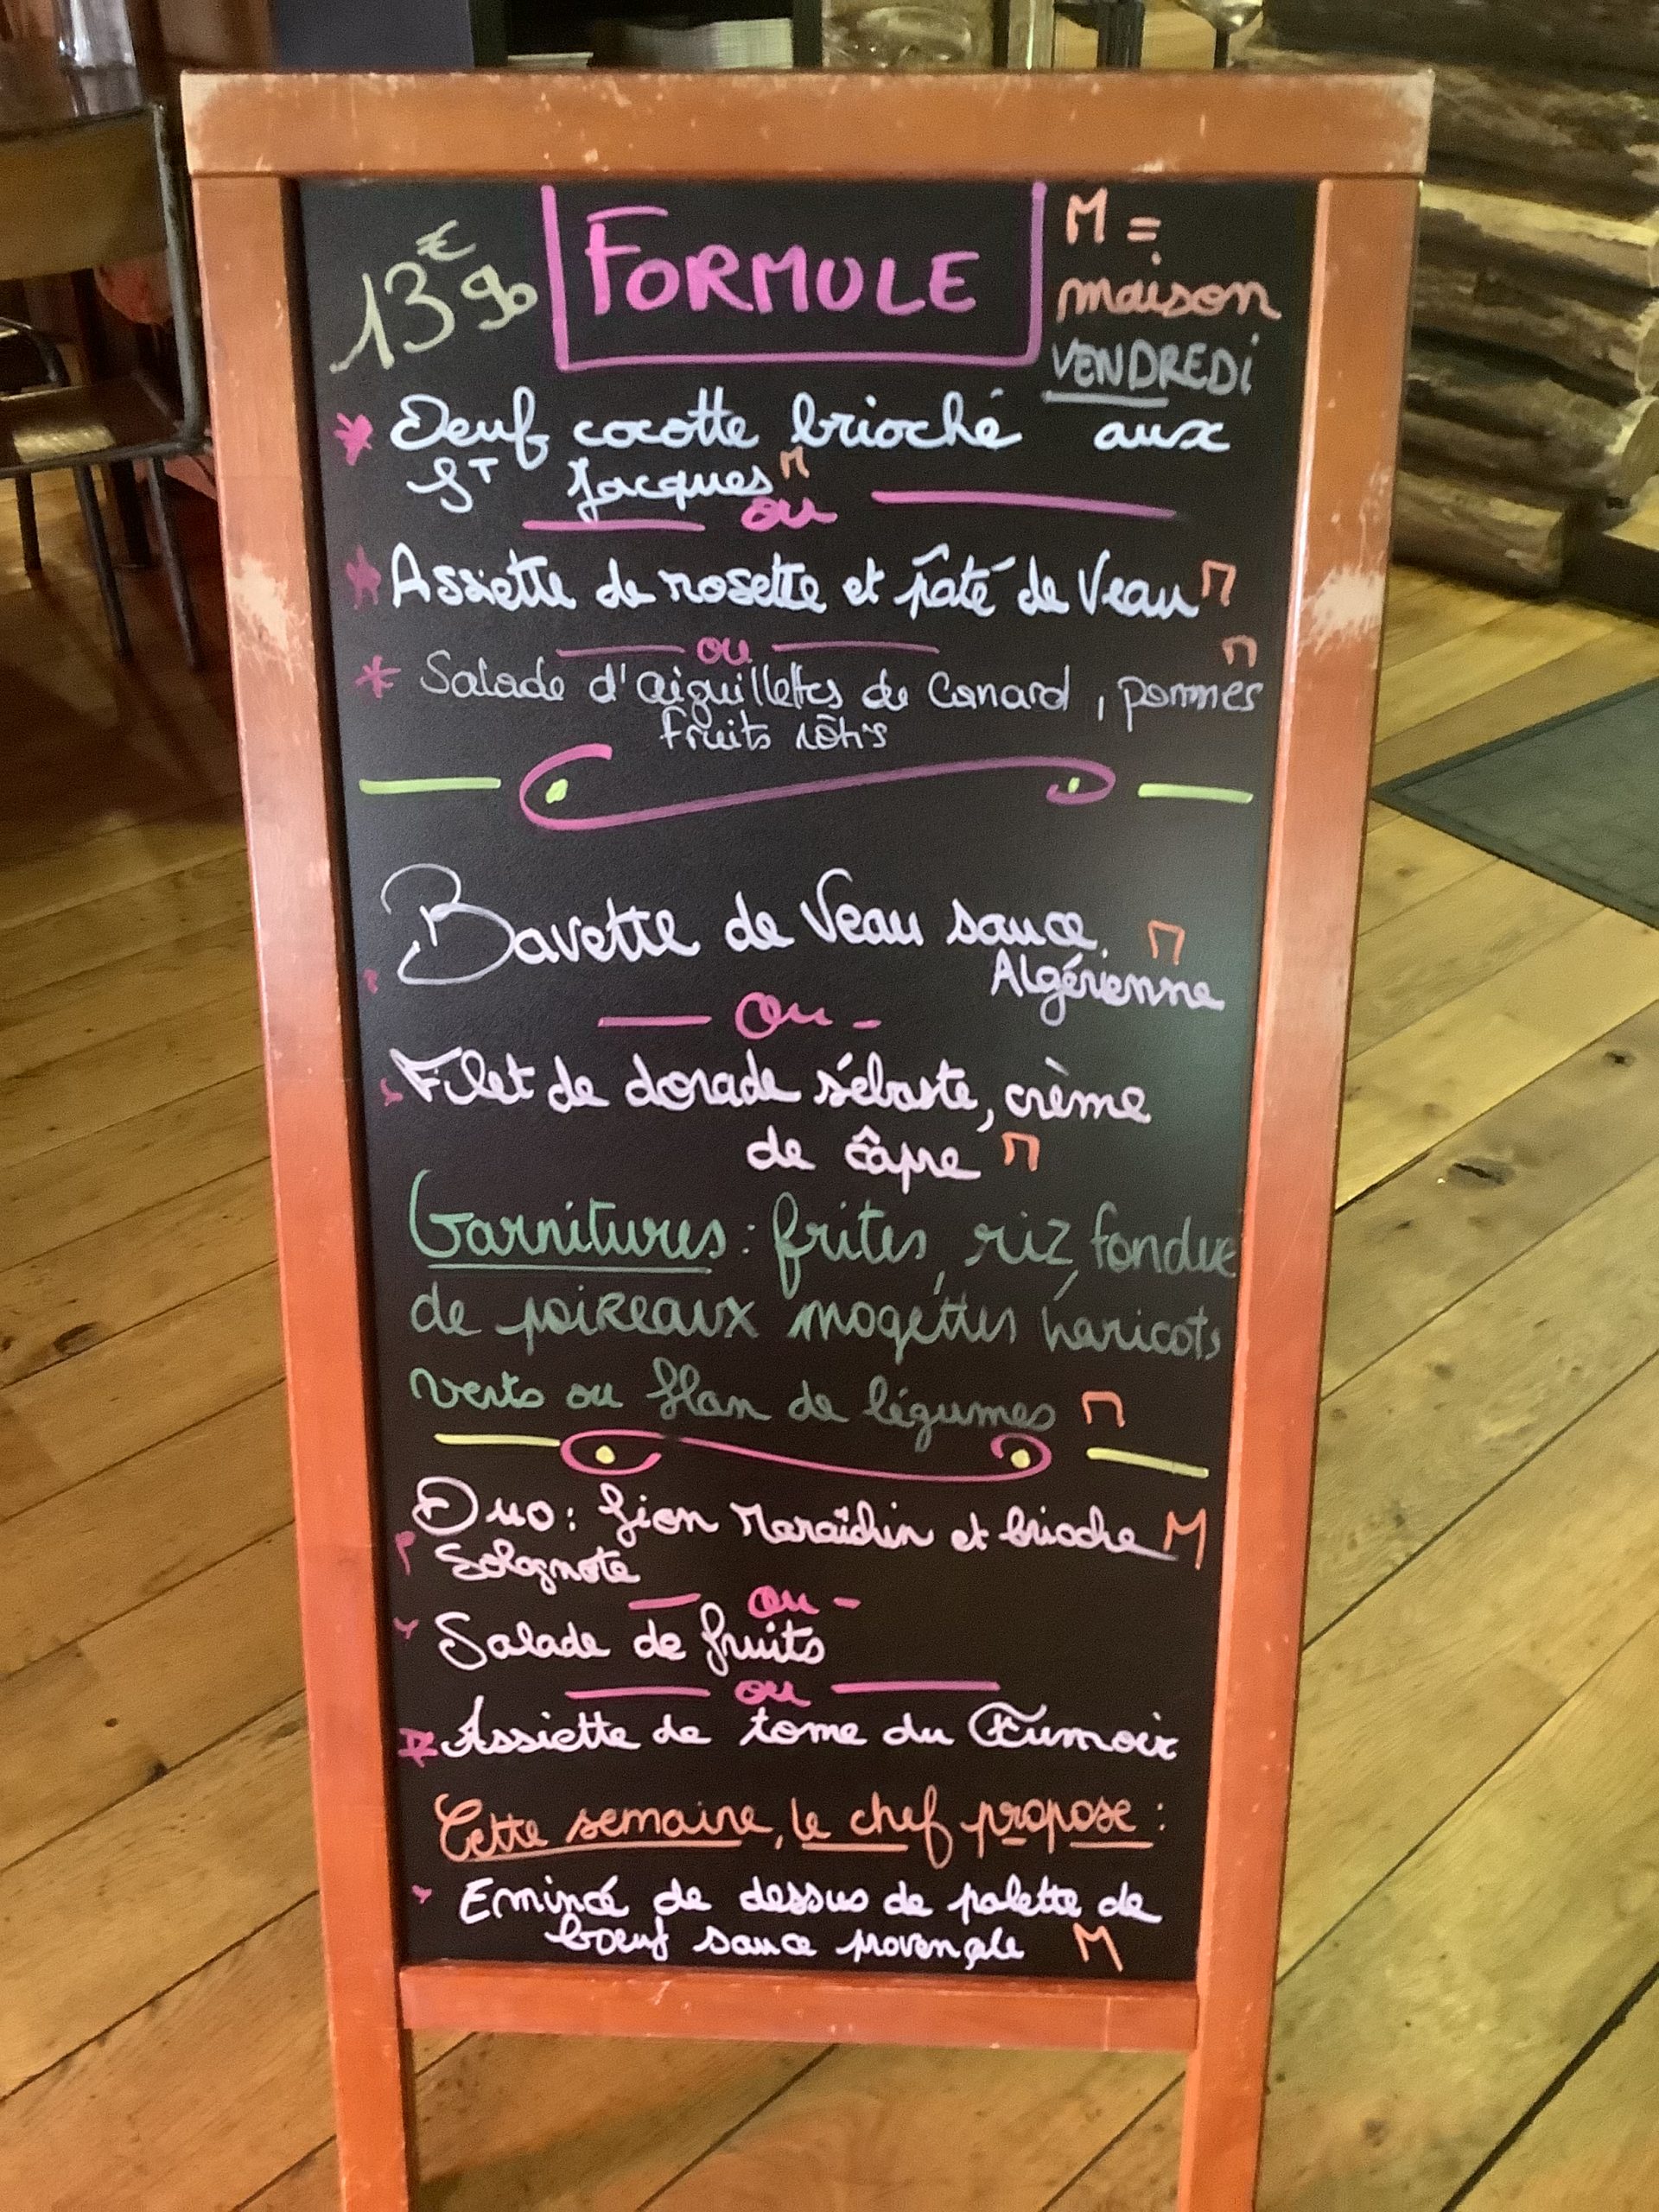 13€90 FORMULE M =
maison
VENDREDI
* Oeuf cocotte brioché aux
St Jacques M
ou
* Assiette de rosette et pâté de Veau M
ou M
* Salade d'aiguillettes de Canard, pommes
fruits rôtis
Bavette de Veau sauce M
Algérienne
- Ou -
Filet de dorade sébaste, crème
de câpre M
Garnitures : frites, riz, fondue
de poireaux mogettes haricots
verts ou flan de légumes M
Duo : Lion Maraîchin et brioche M
Solognote
- ou -
Salade de fruits
ou
* Assiette de tome du Fumoir
Cette semaine, le chef propose :
Emincé de dessus de palette de
boeuf sauce provençale M